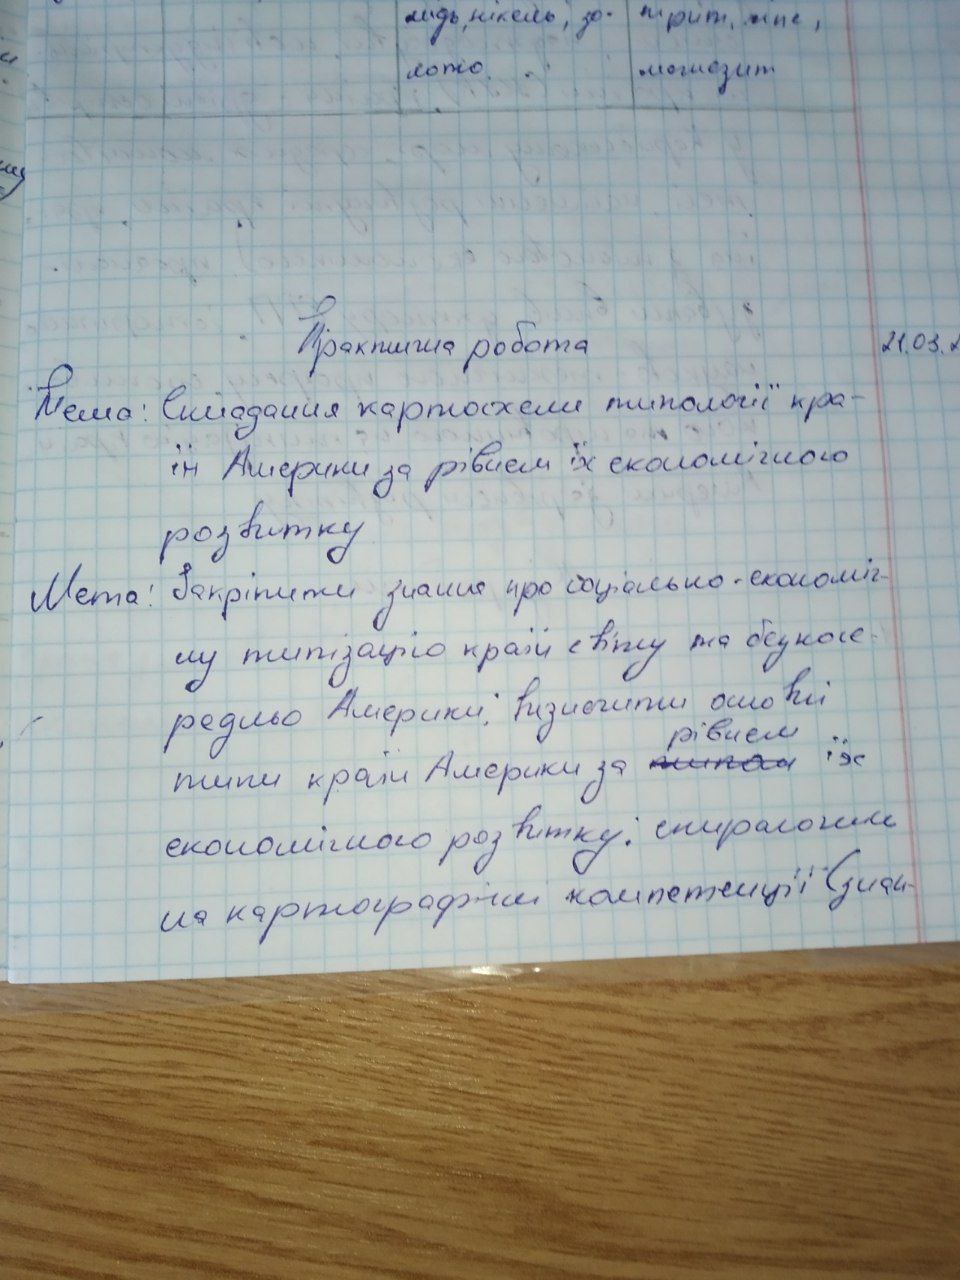 мідь, нікель, зо-
лото
магнезит
Практична робота
21.03.2
Тема: Складання картосхеми типології кра-
їн Америки за рівнем їх економічного
розвитку
Мета: Закріпити знання про соціально-економіч-
ну типізацію країн світу та безпосе-
редньо Америки; визначити основні
типи країн Америки за типом рівнем їх
економічного розвитку;
на картографічні компетенції (знан-